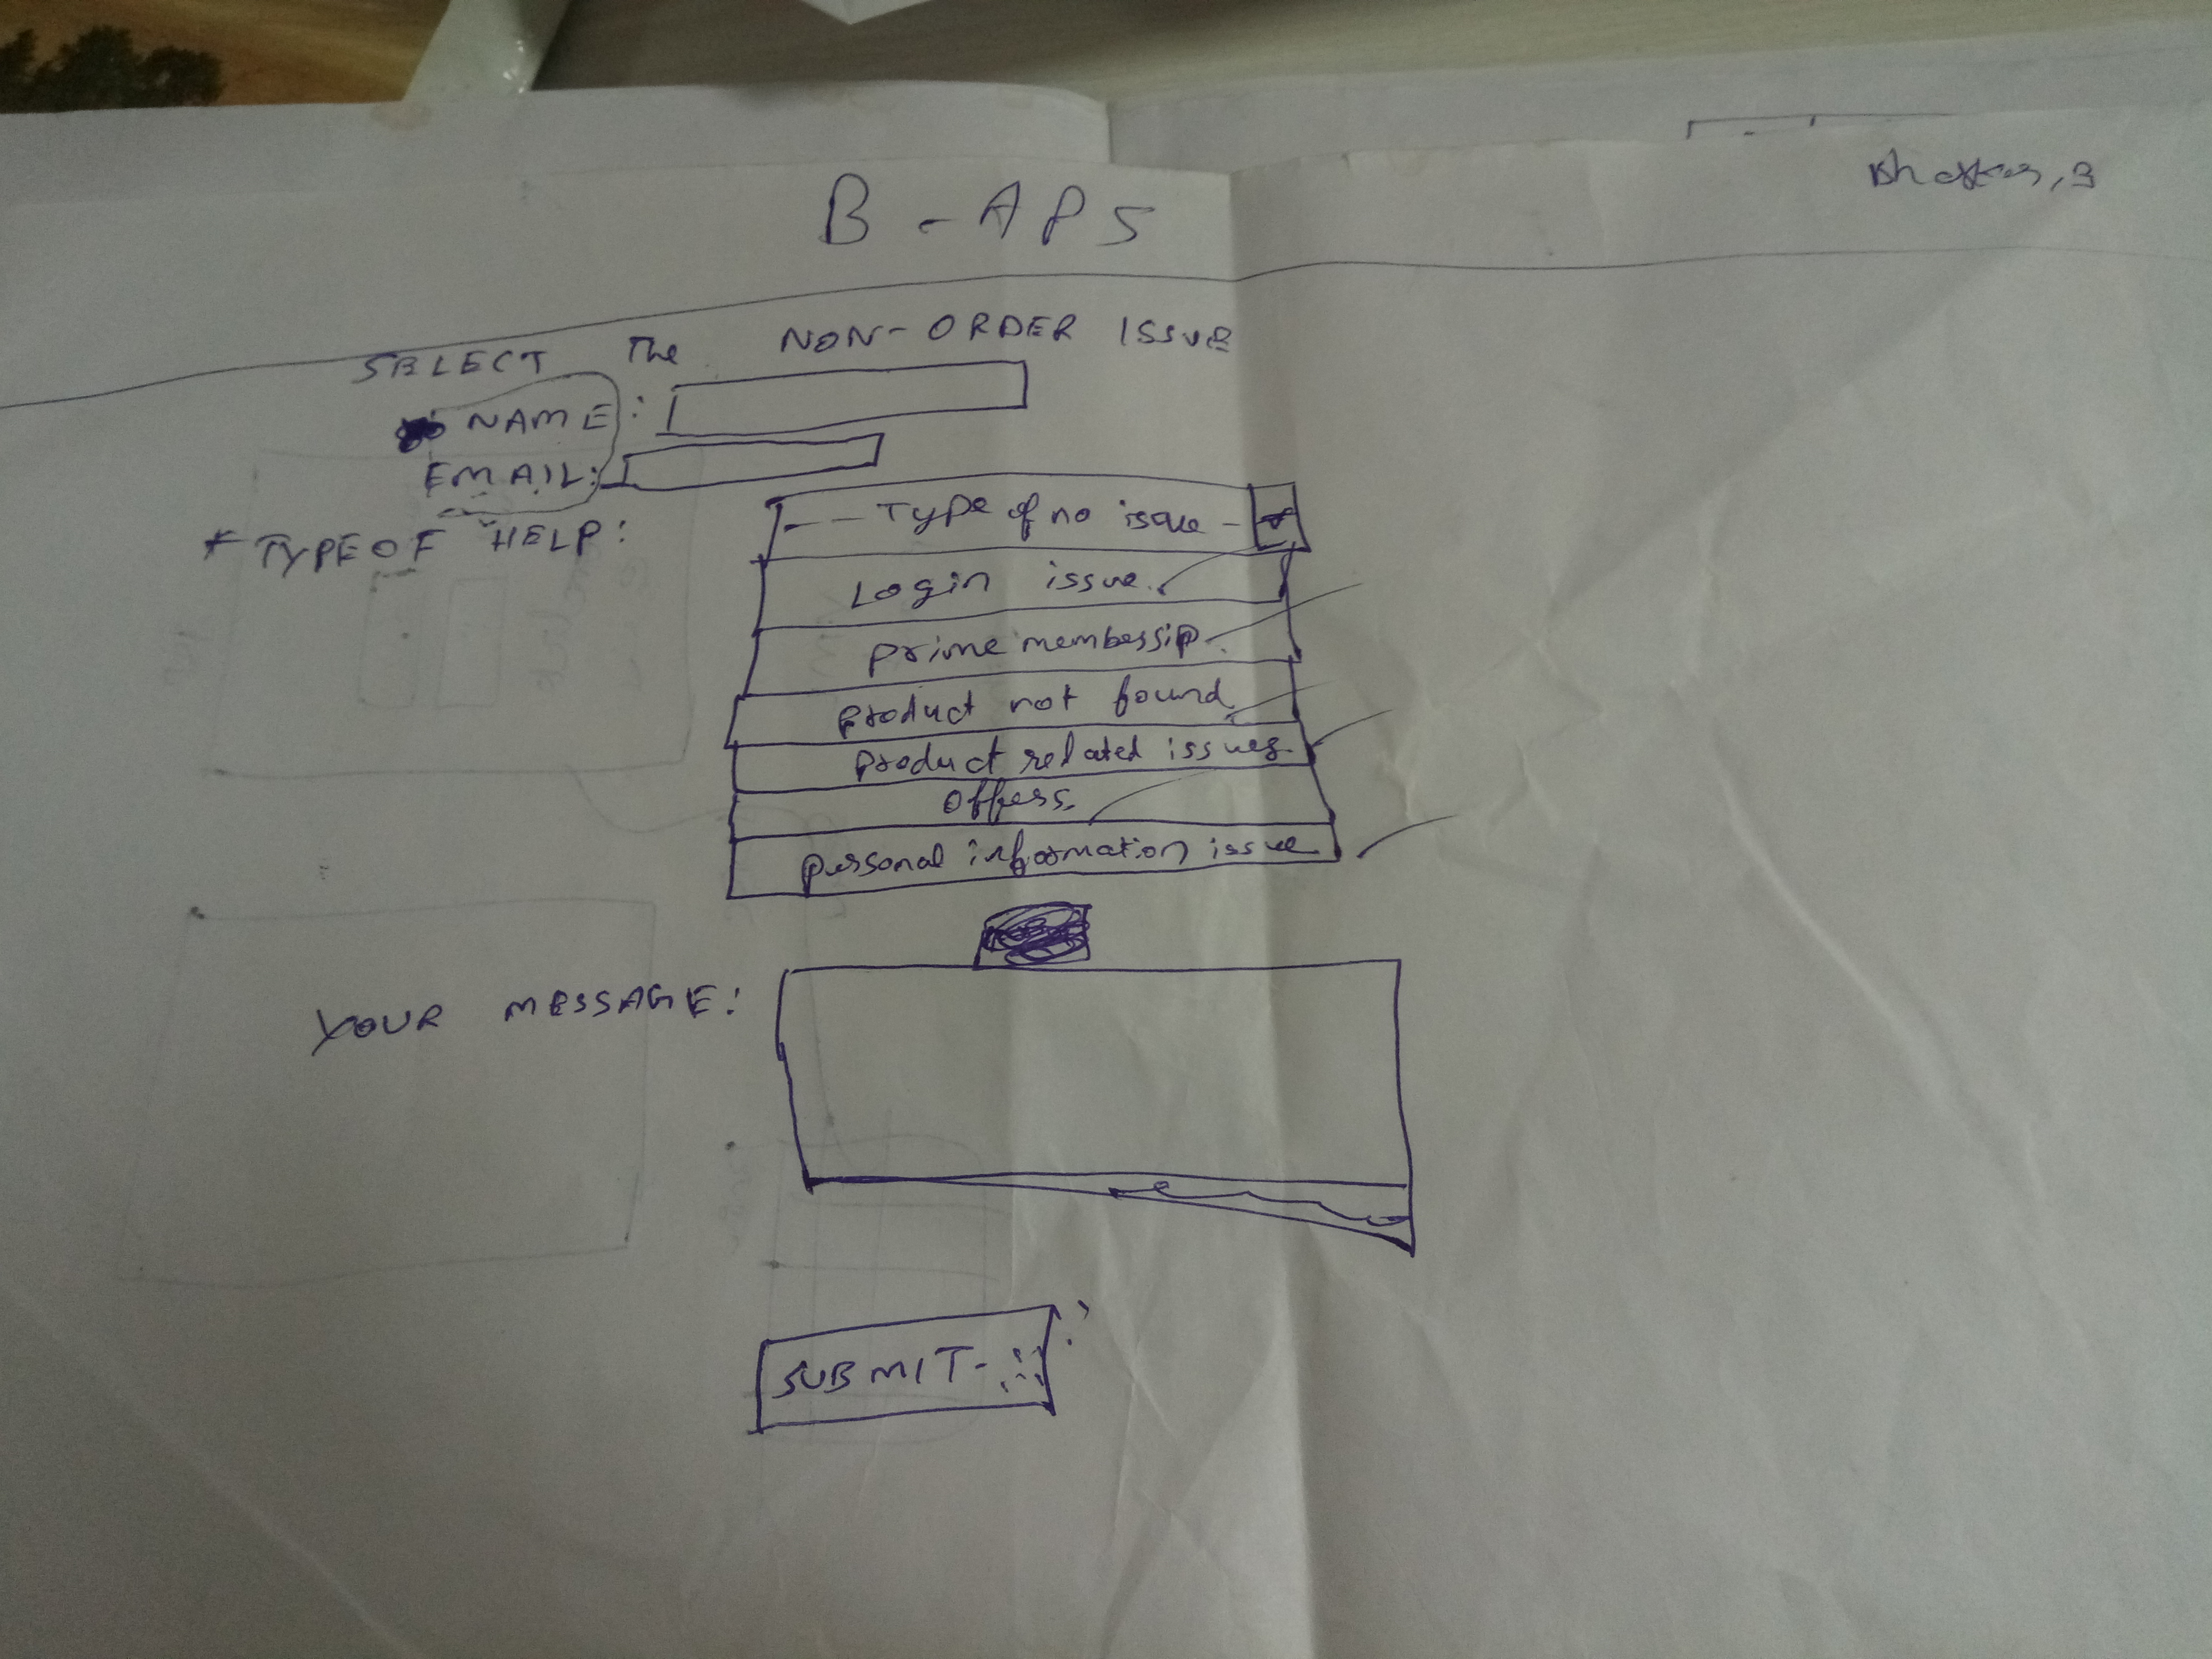 B - APS
SELECT The NON-ORDER ISSUE
NAME:
EMAIL:
* TYPE OF HELP:
--- Type of no issue -
Login issue.
prime memberssip.
product not found
product related issues
offers.
personal information issue
YOUR MESSAGE:
SUBMIT-